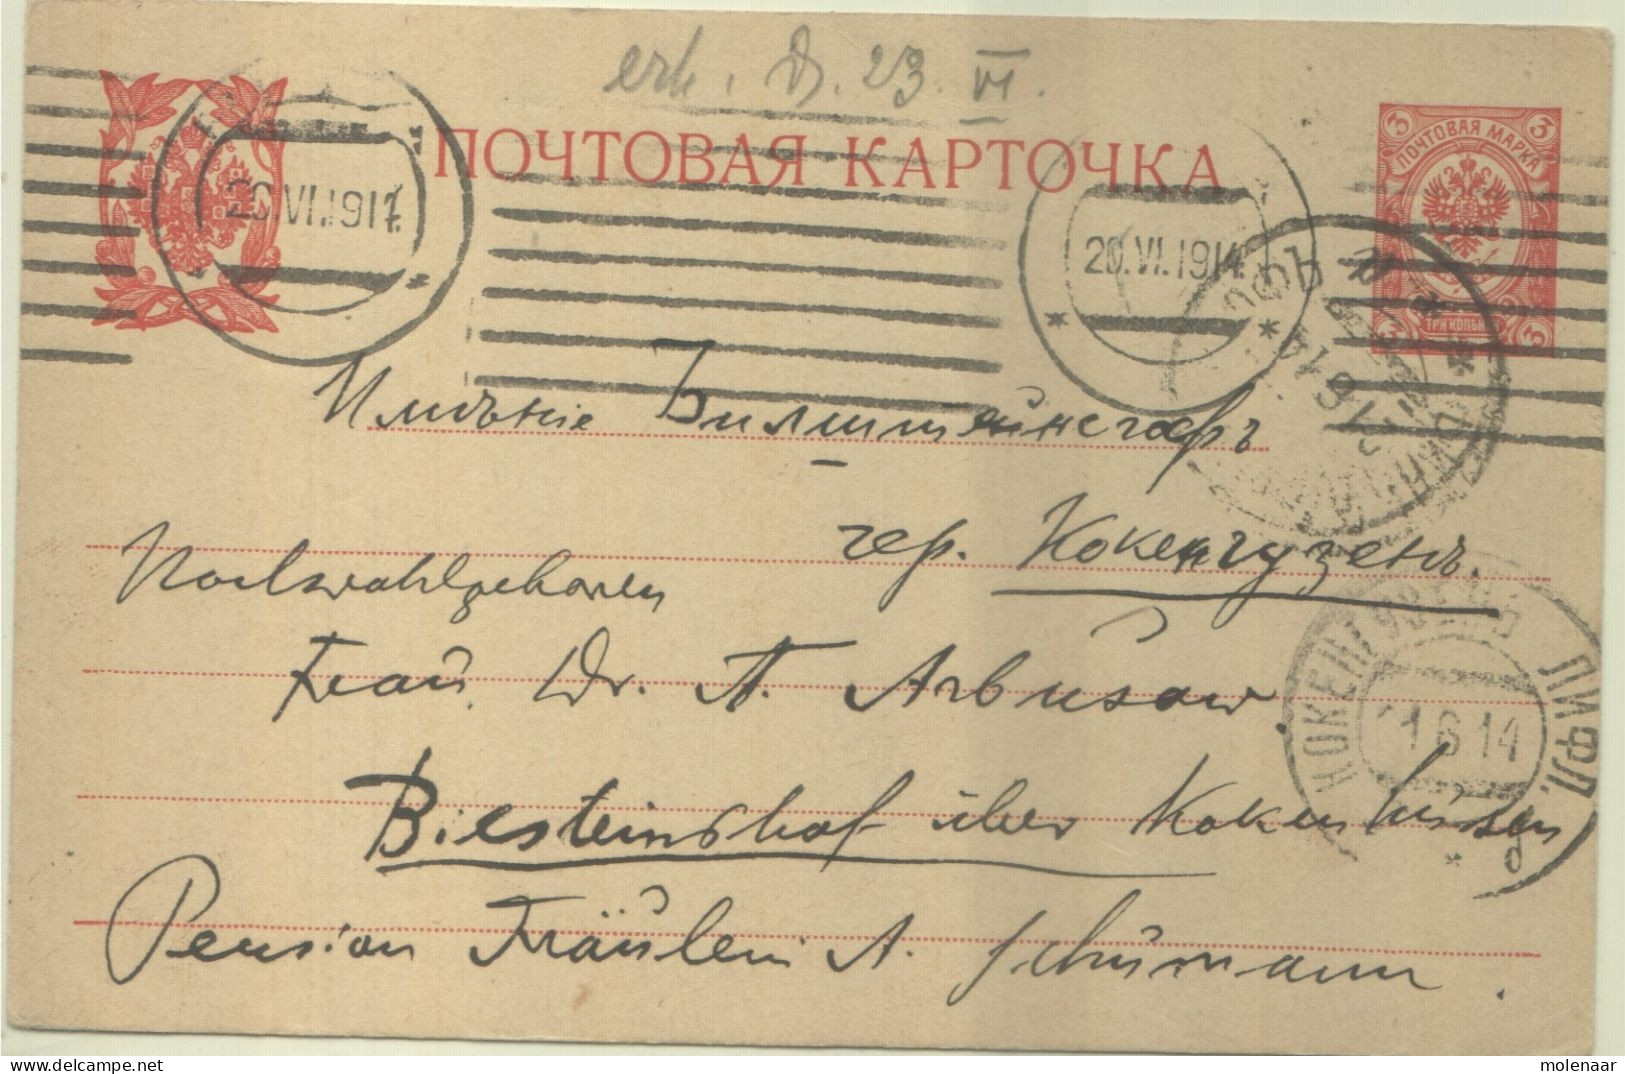 erh. D. 23. VI.
ПОЧТОВАЯ КАРТОЧКА
3 ПОЧТОВАЯ МАРКА 3
3 ТРИ КОП. 3
20.VI.1917.
20.VI.1914.
Имѣніе Билштейнсгофъ
чер. Кокенгузенъ.
Hochwohlgeboren
Frau Dr. A. Arbusow.
Bilsteinshof über Kokenhusen
Pension Fräulein A. Schumann.
КОКЕНГУЗЕНЪ ЛИФЛ.
6 14
molenaar